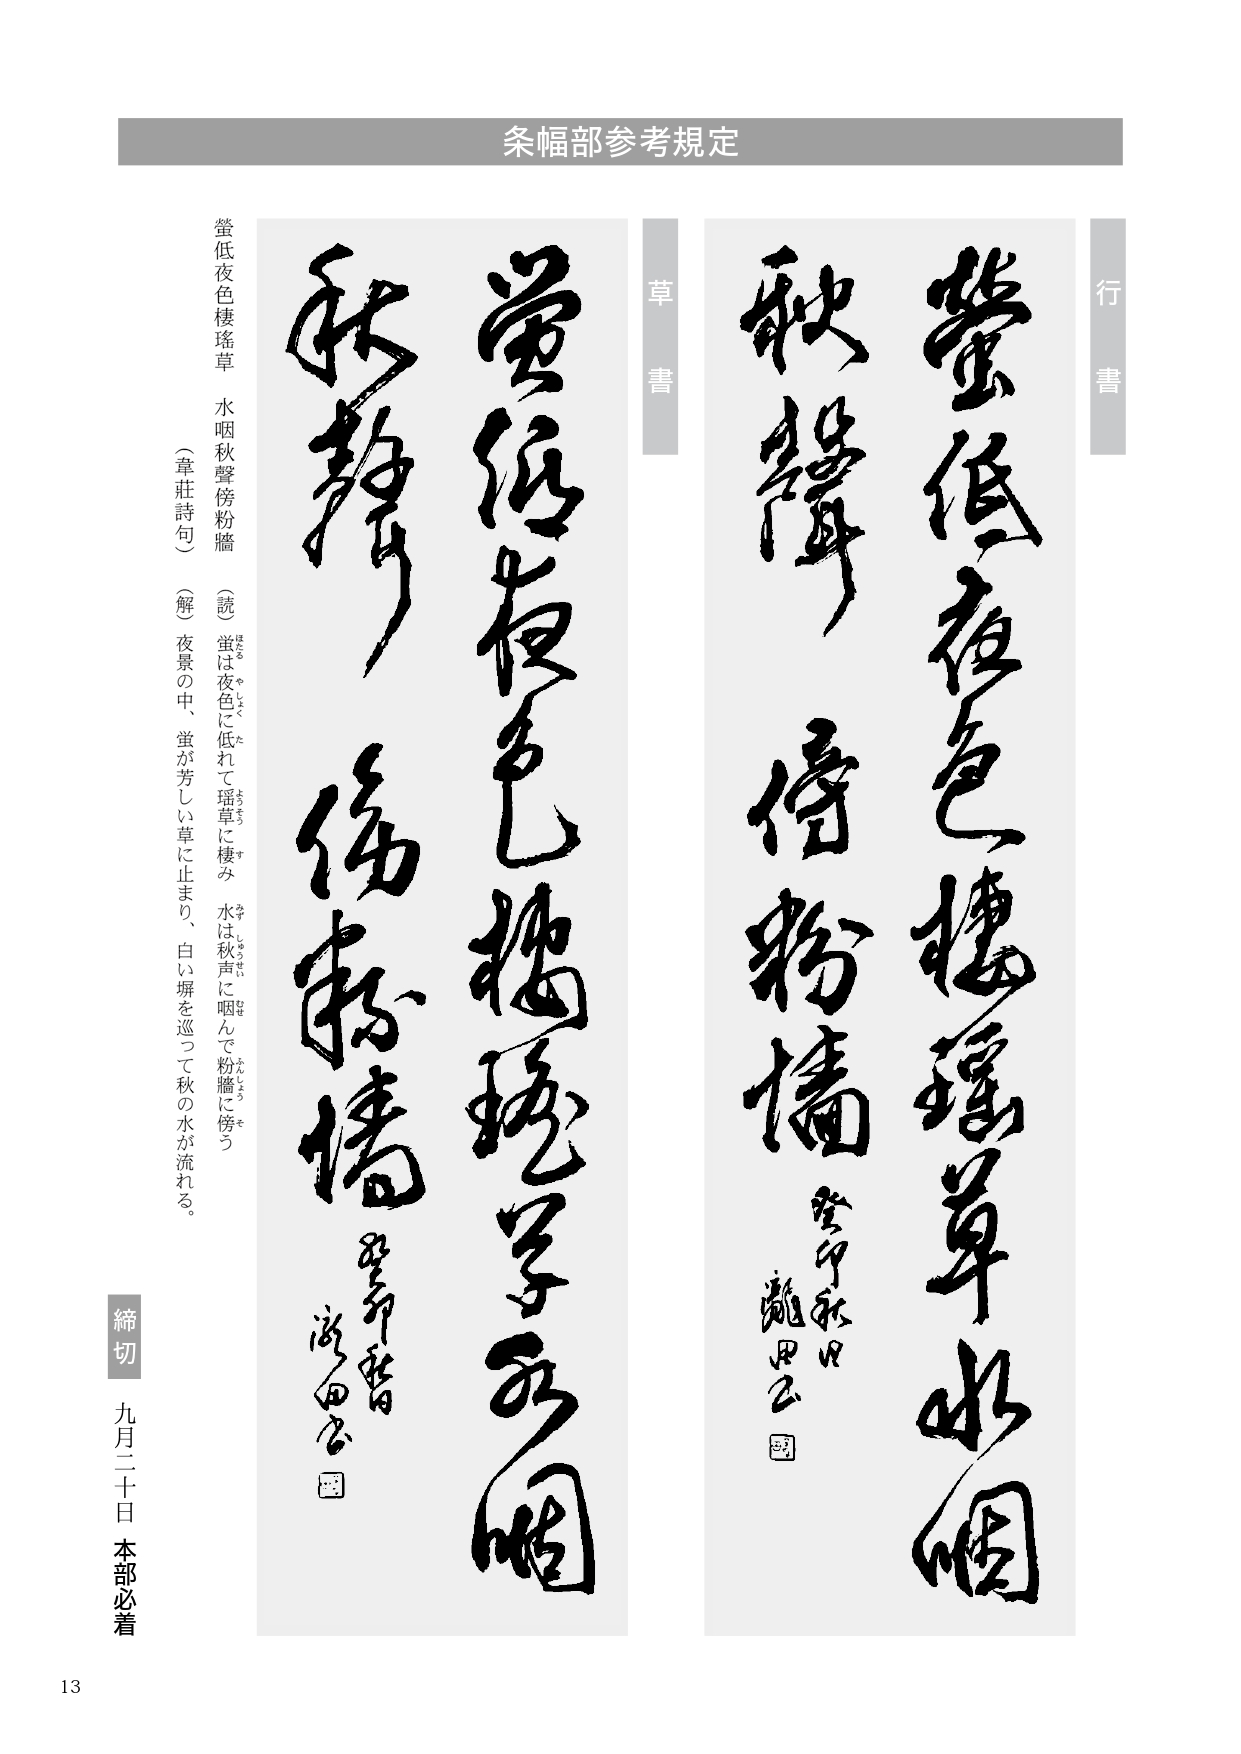 条幅部参考規定
行書
螢低夜色棲瑤草水咽
秋聲傍粉墻
癸卯秋日
瀧田書
草書
螢低夜色棲瑤草水咽
秋聲傍粉墻
癸卯秋日
瀧田書
螢低夜色棲瑤草　水咽秋聲傍粉牆
（韋莊詩句）
（読）蛍は夜色に低れて瑶草に棲み　水は秋声に咽んで粉牆に傍う
ほたる　やしょく　た　ようそう　す　みず　しゅうせい　むせ　ふんしょう　そ
（解）夜景の中、蛍が芳しい草に止まり、白い塀を巡って秋の水が流れる。
締切　九月二十日　本部必着
13